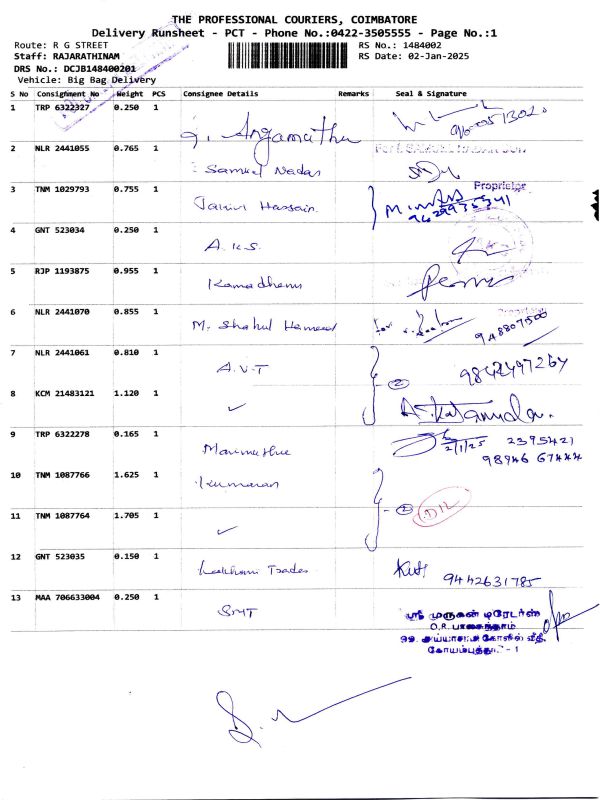 THE PROFESSIONAL COURIERS, COIMBATORE
Delivery Runsheet - PCT - Phone No.:0422-3505555 - Page No.:1
Route: R G STREET
RS No.: 1484002
Staff: RAJARATHINAM
RS Date: 02-Jan-2025
DRS No.: DCJB148400201
Vehicle: Big Bag Delivery
S No Consignment No Weight PCS Consignee Details Remarks Seal & Signature
1 TRP 6322327 0.250 1
2 NLR 2441055 0.765 1 Samuel Nadar
3 TNM 1029793 0.755 1 Hassain
Proprietor
4 GNT 523034 0.250 1 A.K.S.
5 RJP 1193875 0.955 1 Kamadhenu
6 NLR 2441070 0.855 1 M. Shahul Hameed
7 NLR 2441061 0.810 1 A.V.T 9842497264
8 KCM 21483121 1.120 1 ✓ 2
9 TRP 6322278 0.165 1 Marimuthu 2/1/25 2395421
98946 67444
10 TNM 1087766 1.625 1 Kumaran
11 TNM 1087764 1.705 1 ✓ 2
12 GNT 523035 0.150 1 Lakshmi Trades 9442631785
13 MAA 706633004 0.250 1 SMT
ஸ்ரீ முருகன் டிரேடர்ஸ்
O.R. பாலசந்தரம்
99, அய்யாசாமி கோவில் வீதி,
கோயம்புத்தூர் - 1